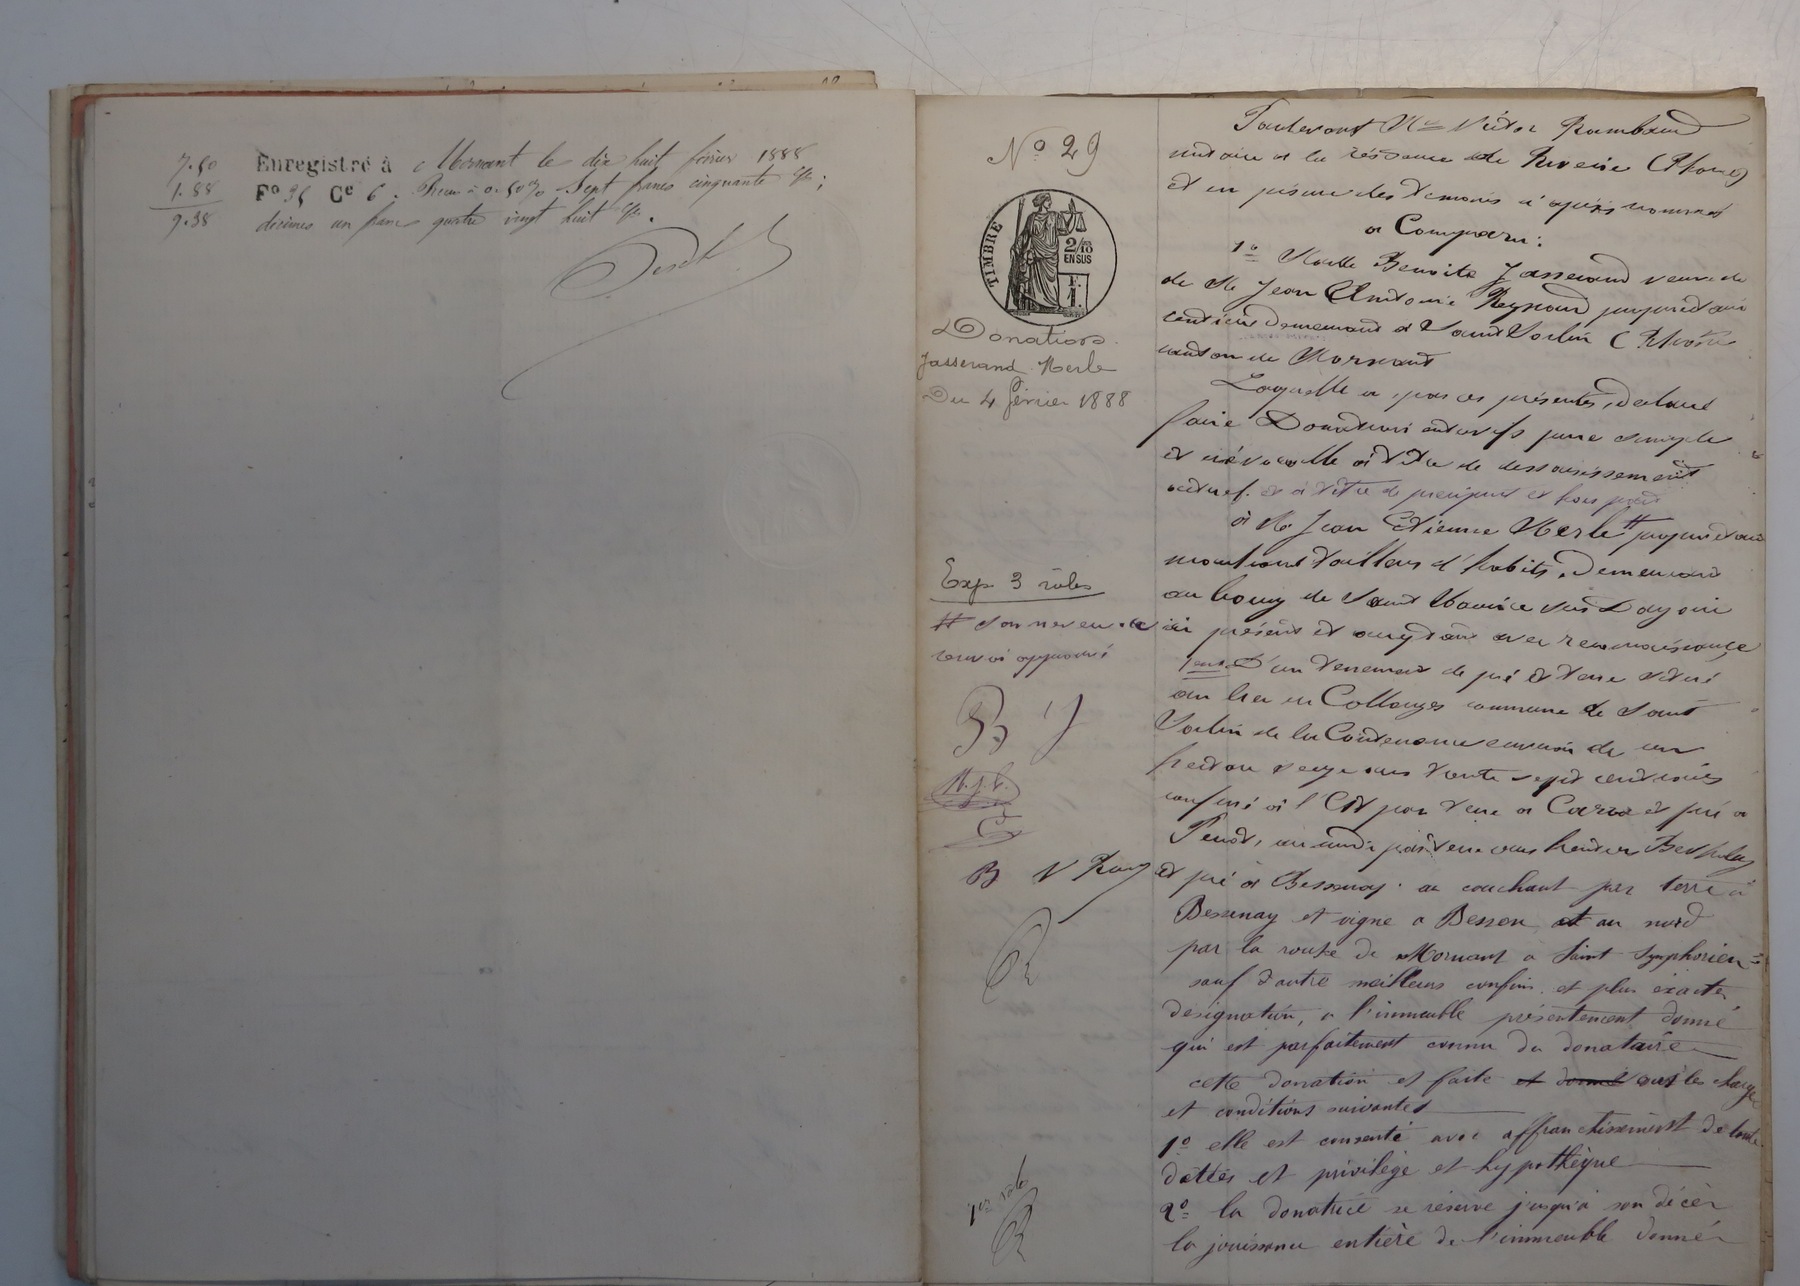 7.50
1.88
9.38
Enregistré à Mornant le dix huit février 1888
F° 35 Ce 6. Reçu à 0.50% Sept francs cinquante c/es;
décimes un franc quatre vingt huit c/es.
N° 29
TIMBRE
2/10
EN SUS
F.
1.
Donation
Jasserand Merle
Du 4 février 1888
Exp 3 rôles
# son neveu
renvoi approuvé
B J
B V Ray
1er rôle
Pardevant Me Victor Rambaud
notaire à la résidence de Riverie (Rhône)
et en présence des témoins ci après nommés
a Comparu:
1° Made Benoite Jasserand veuve de
de Mr Jean Antoine Reynaud propriétaire
rentière demeurant à Saint Sorlin (Rhône
canton de Mornant
Laquelle a, par ces présentes, déclaré
faire Donation entre vifs pure simple
et irévocable à titre de dessaisissement
actuel. et à titre de préciput et hors part
à Mr Jean Etienne Merle # propriétaire
marchand tailleur d'habits, demeurant
au bourg de Saint Maurice sur Dargoire
ici présent et acceptant avec reconnaissance
D'un tenement de pré et terre situé
au lieu en Collonges commune de Saint
Sorlin de la Contenance environ de un
hectare seize ares trente sept centiares
confiné à l'Est par terre à et pré à
au midi par terre aux heritiers
et pré à Bessenay. au couchant par terre à
Bessenay et vigne a Besson et au nord
par la route de Mornant a Saint Symphorien
sauf d'autre meilleurs confins et plus exacte
désignation, a l'immeuble présentement donné
qui est parfaitement connu du donataire
cette donation est faite et donné aux les charges
et conditions suivantes
1° elle est consentie avec affranchissement de toute
dettes et privilège et hypothèque
2° la donatrice se réserve jusqu'à son décès
la jouissance entière de l'immeuble donné